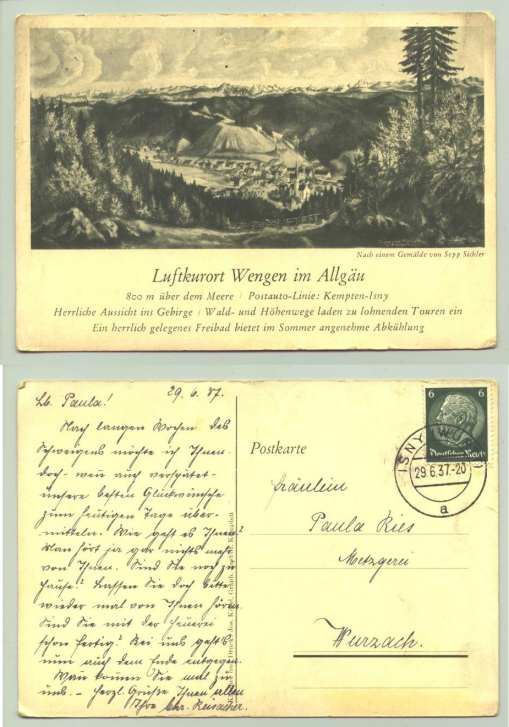 Nach einem Gemälde von Sepp Sickler
Luftkurort Wengen im Allgäu
800 m über dem Meere / Postauto-Linie: Kempten-Isny
Herrliche Aussicht ins Gebirge / Wald- und Höhenwege laden zu lohnenden Touren ein
Ein herrlich gelegenes Freibad bietet im Sommer angenehme Abkühlung
29. 6. 37.
Lb. Paula!
Nach langen Wochen des
Schweigens möchte ich Ihnen
doch - wenn auch verspätet -
unsere besten Glückwünsche
zum heutigen Tage über-
mitteln. Wie geht es Ihnen?
Man hört ja gar nichts mehr
von Ihnen. Sind Sie noch zu
Hause? Lassen Sie doch bitte
wieder mal von Ihnen hören.
Sind Sie mit der Heuerei
schon fertig? Bei uns geht's
nun auch dem Ende entgegen.
Wann kommen Sie mal zu
uns. - Herzl. Grüße Ihnen allen
Ihre
Postkarte
6 6
Deutsches Reich
ISNY (WÜRTT)
29.6.37.-20
a
Fräulein
Paula Ries
Metzgerei
Wurzach.